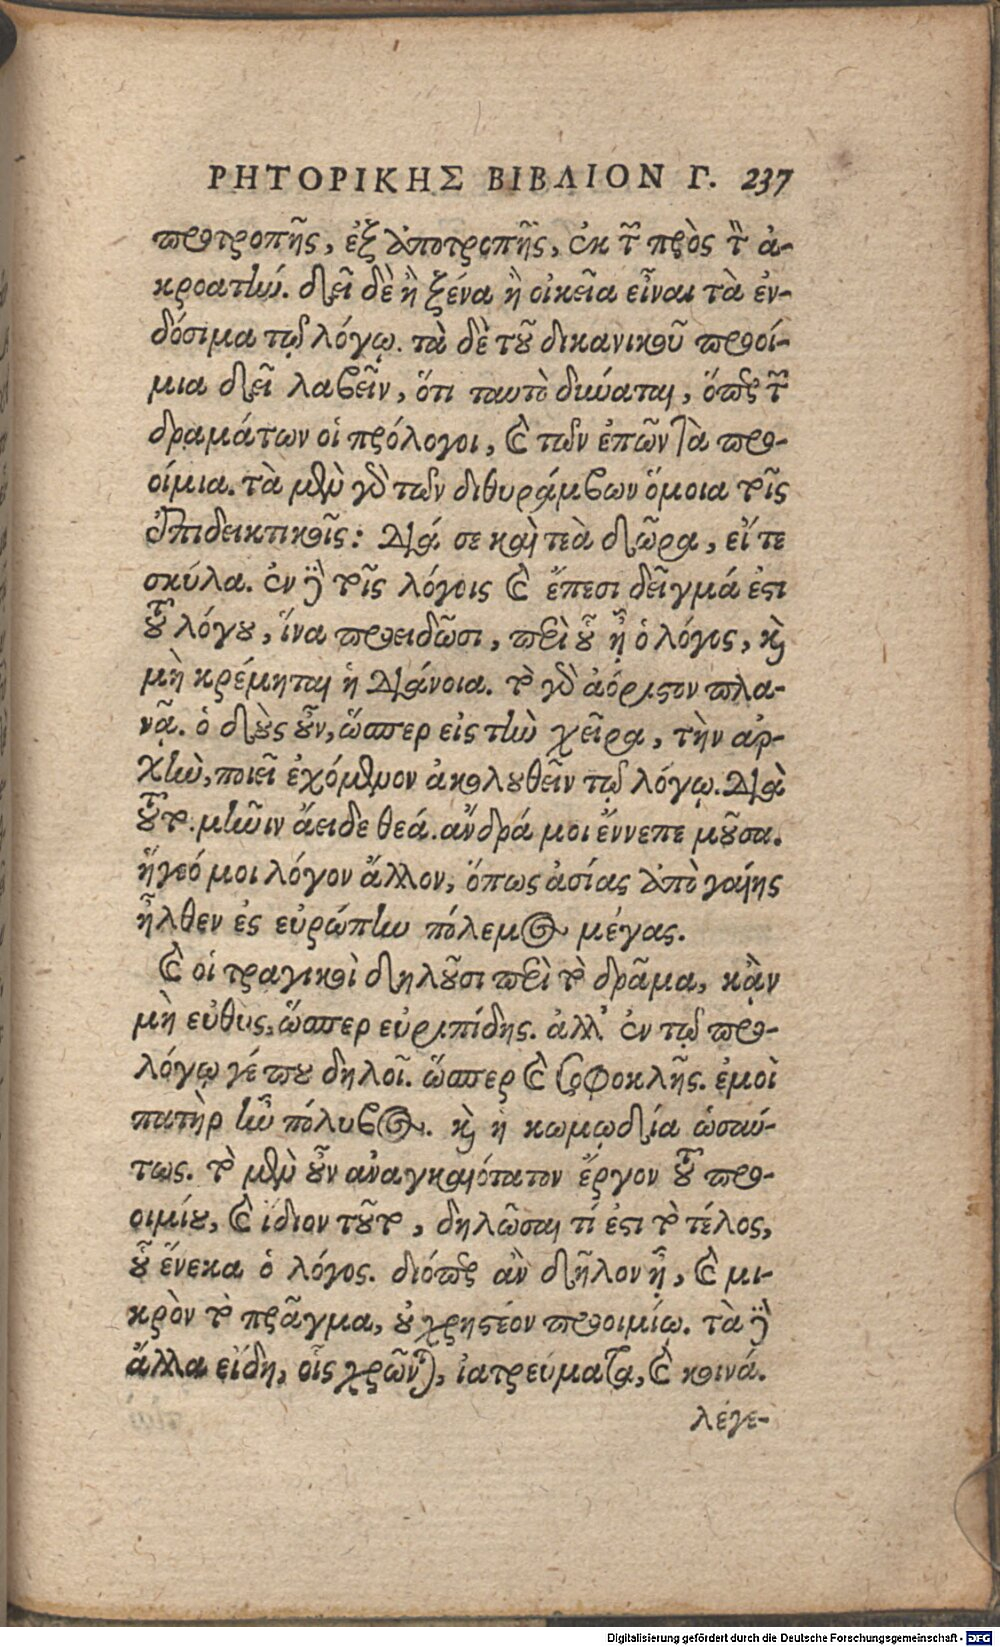 ΡΗΤΟΡΙΚΗΣ ΒΙΒΛΙΟΝ Γ. 237
προτροπῆς, ἐξ ἀποτροπῆς, ἐκ τῶν πρὸς τὸν ἀ-
κροατήν. δεῖ δὲ ἢ ξένα ἢ οἰκεῖα εἶναι τὰ ἐν-
δόσιμα τῷ λόγῳ. τὰ δὲ τοῦ δικανικοῦ προοί-
μια δεῖ λαβεῖν, ὅτι ταυτὸ δύναται, ὅπερ τῶν
δραμάτων οἱ πρόλογοι, καὶ τῶν ἐπῶν τὰ προ-
οίμια. τὰ μὲν γὰρ τῶν διθυράμβων ὅμοια τοῖς
ἐπιδεικτικοῖς: Διά σε καὶ τεὰ δῶρα, εἴ τε
σκύλα. ἐν δὲ τοῖς λόγοις καὶ ἔπεσι δεῖγμά ἐστι
τοῦ λόγου, ἵνα προειδῶσι, περὶ οὗ ᾖ ὁ λόγος, καὶ
μὴ κρέμηται ἡ διάνοια. τὸ γὰρ ἀόριστον πλα-
νᾷ. ὁ δοὺς οὖν, ὥσπερ εἰς τὴν χεῖρα, τὴν ἀρ-
χὴν, ποιεῖ ἐχόμενον ἀκολουθεῖν τῷ λόγῳ. Διὰ
τοῦτο. μῆνιν ἄειδε θεά. ἄνδρά μοι ἔννεπε μοῦσα.
ἥγεό μοι λόγον ἄλλον, ὅπως ἀσίας ἀπὸ γαίης
ἦλθεν ἐς εὐρώπην πόλεμος μέγας.
καὶ οἱ τραγικοὶ δηλοῦσι περὶ τὸ δρᾶμα, κἂν
μὴ εὐθὺς, ὥσπερ εὐριπίδης. ἀλλ' ἐν τῷ προ-
λόγῳ γέ που δηλοῖ. ὥσπερ καὶ Σοφοκλῆς. ἐμοὶ
πατὴρ ἦν πόλυβος. καὶ ἡ κωμῳδία ὡσαύ-
τως. τὸ μὲν οὖν ἀναγκαιότατον ἔργον τοῦ προ-
οιμίου, καὶ ἴδιον τοῦτο, δηλῶσαι τί ἐστι τὸ τέλος,
οὗ ἕνεκα ὁ λόγος. διόπερ ἂν δῆλον ᾖ, καὶ μι-
κρὸν τὸ πρᾶγμα, οὐ χρηστέον προοιμίῳ. τὰ δὲ
ἄλλα εἴδη, οἷς χρῶνται, ἰατρεύματα, καὶ κοινά.
λέγε-
Digitalisierung gefördert durch die Deutsche Forschungsgemeinschaft - DFG